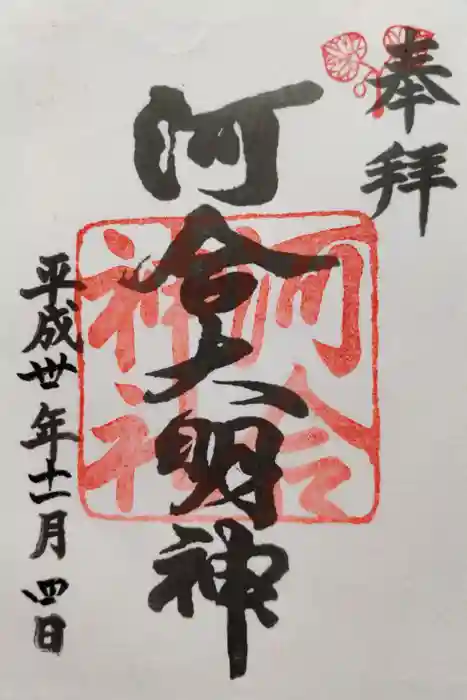 奉拝
河合大明神
河合
神社
平成丗年十一月四日